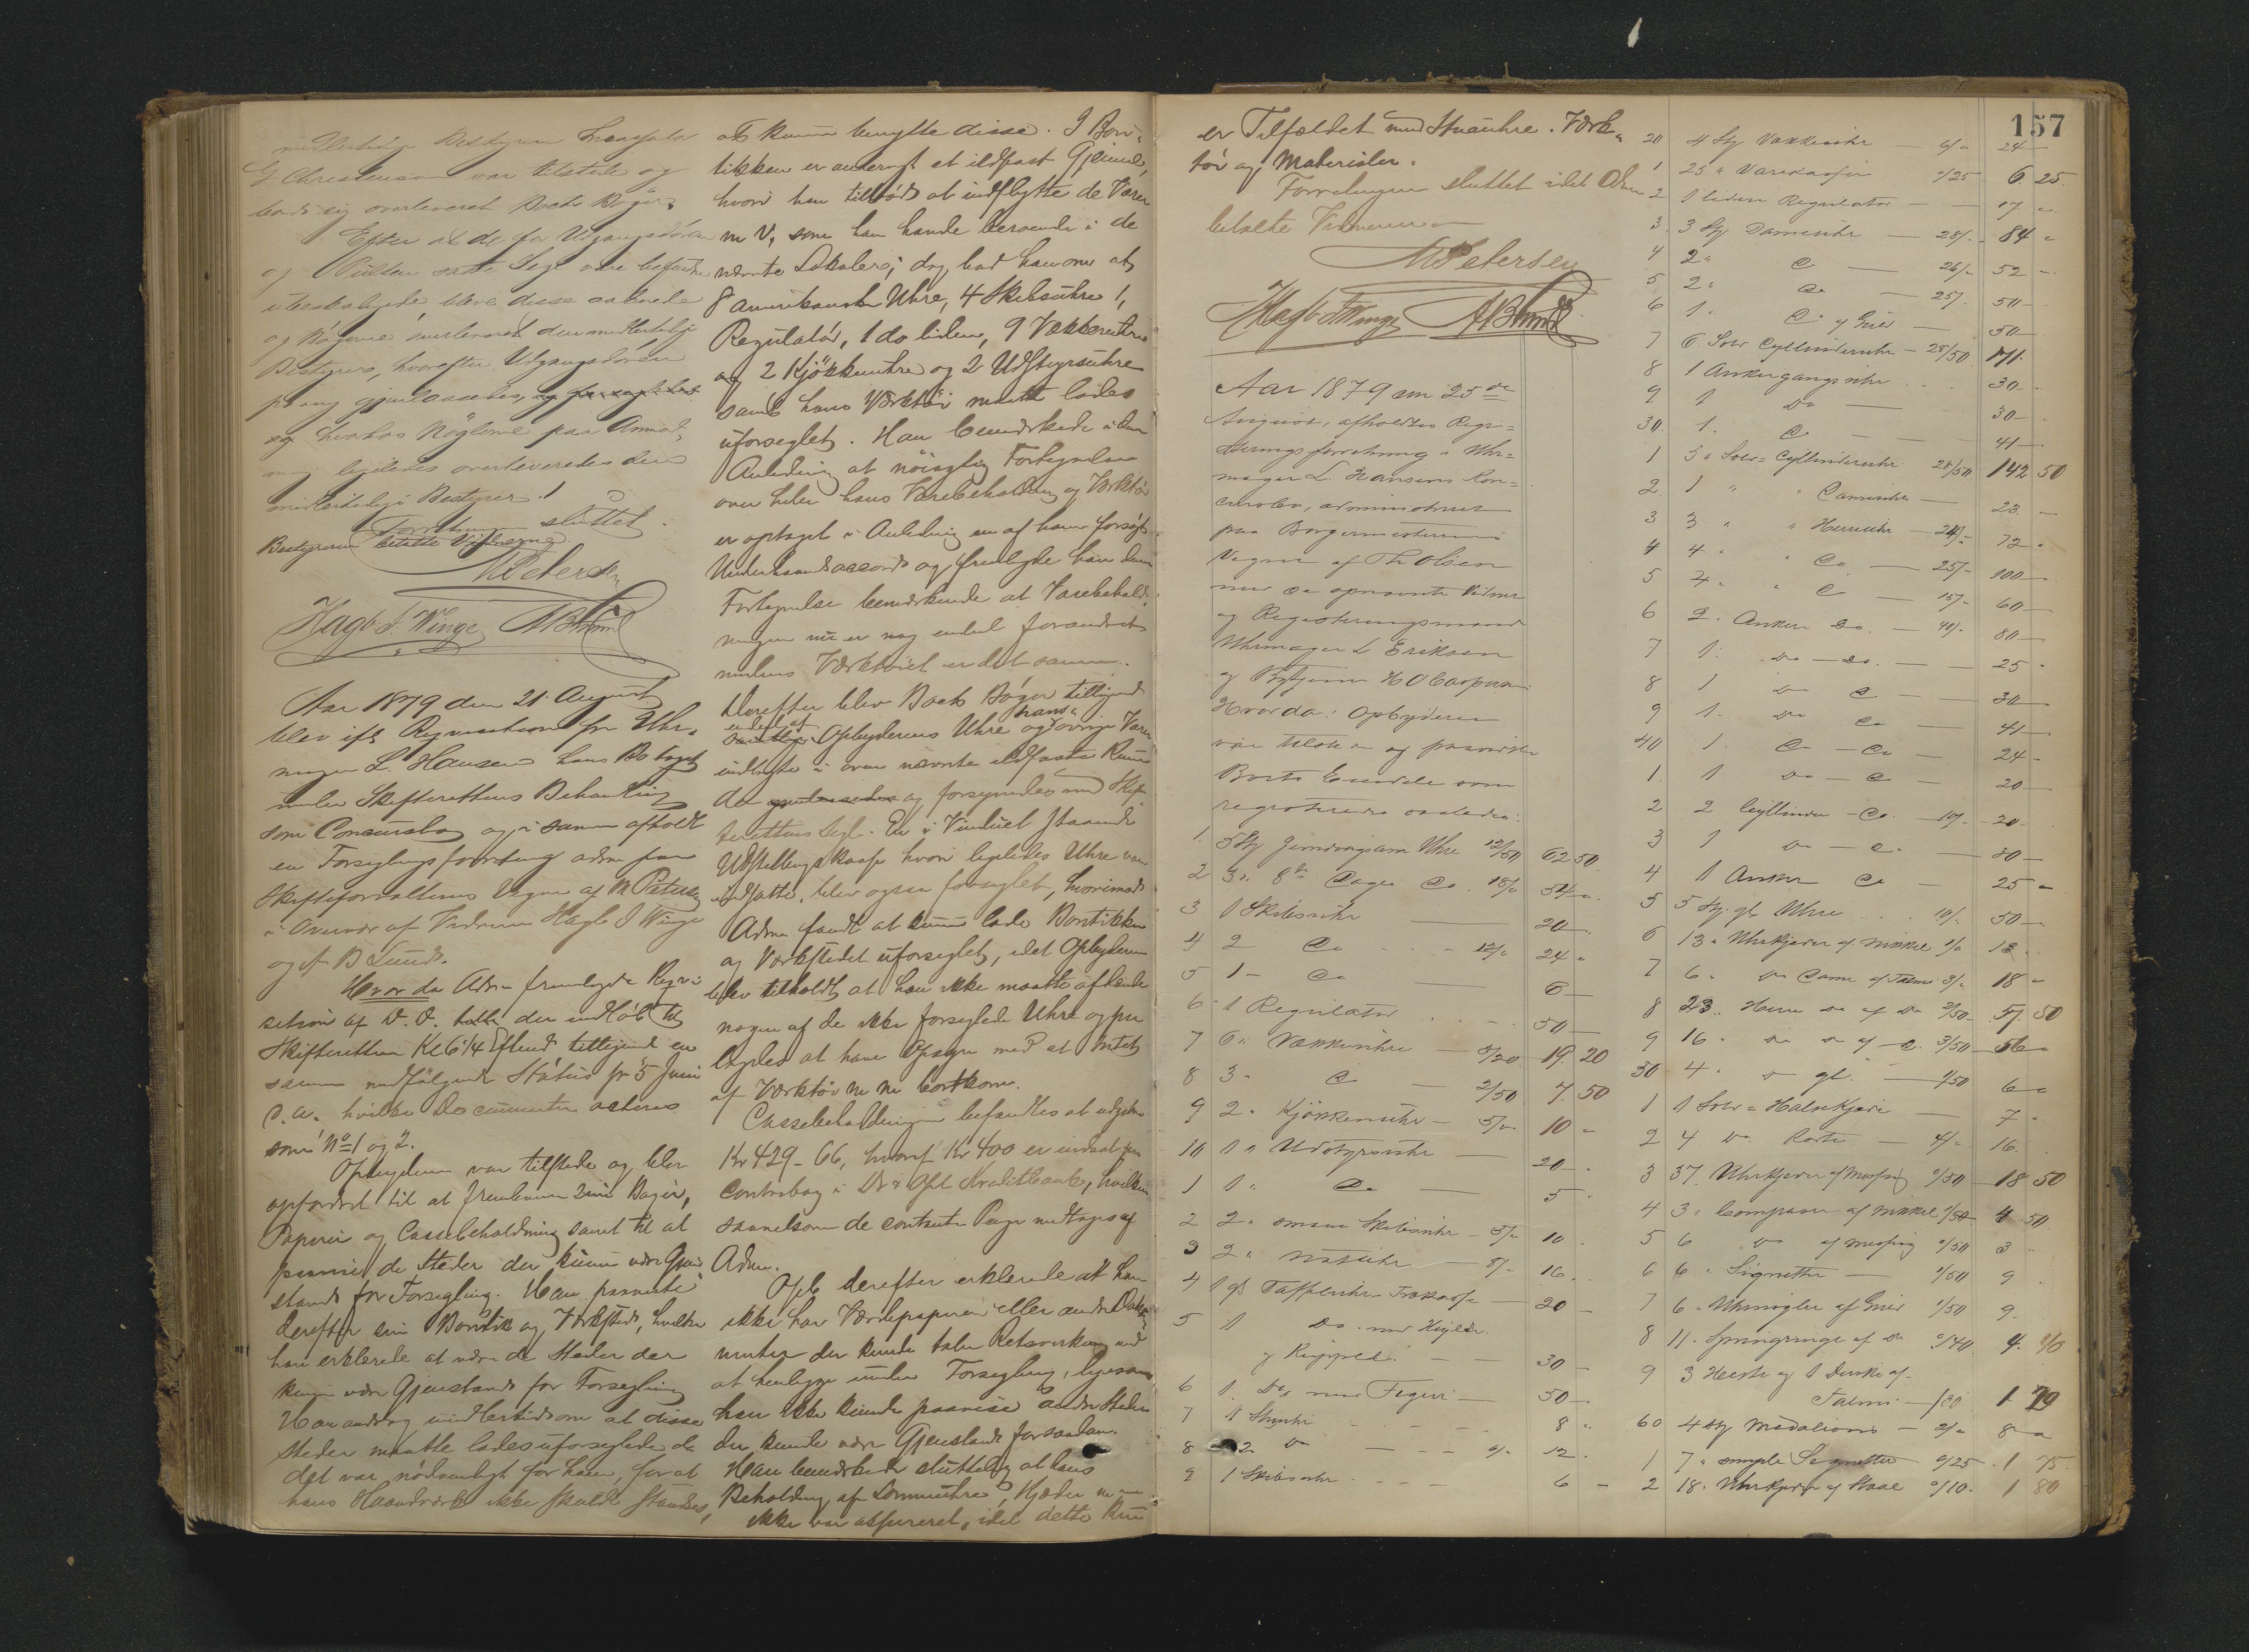 midlertidige Bestyrer
G Christensen var tilstede og
sig overleveret Boets Bøger.
Efter at de for Udgangsdøren
og Pulten satte Segl vare befundne
ubeskadigede, bleve disse aabnede
og Bøgerne overleveret den midlertidige
Bestyrer, hvorefter Udgangsdøren
paany gjenlaasedes,
og hvorhos Nøglerne paa Anmod
ning ligeledes overleveredes den
midlertidige Bestyrer.
Forretningen sluttet.
Bestyreren betalte Vidnerne.
M Petersen
Hagb. J. Winge AB Lund
Aar 1879 den 21 August
blev ifl Reqvisition fra Uhr-
mager L. Hansen hans Bo taget
under Skifterettens Behandling
som Concursbo og i samme afholdt
en Forseglingsforretning adm paa
Skifteforvalterens Vegne af M Petersen
i Overvær af Vidnerne Hagb J Winge
og A B Lund.
Hvor da Adm fremlagde Reqvi-
sition af D. D. der indløb til
Skifteretten Kl 6 1/4 Eftmd tilligemed en
samme medfølgende Status pr 5 Juni
d.a. hvilke Documenter acteres
som No 1 og 2.
Opbyderen var tilstede og blev
opfordret til at fremkomme sine Bøger,
Papirer og Cassebeholdning samt til at
paavise de Steder der kunne være Gjen
stand for Forsegling. Han paaviste
derefter sin Boutik og Værksted, hvilke
han erklærede at være de Steder der
kunne være Gjenstand for Forsegling
Han androg imidlertid om at disse
Steder maatte lades uforseglede da
det var nødvendigt for ham, for at
hans Haandværk ikke skulde standses,
at kunne benytte disse. I Bou-
tikken er anbragt et ildfast Gjemme,
hvori han tilbød at indflytte de Varer
m V, som han havde beroende i de
nævnte Lokaler; dog bad han om at
8 amerikanske Uhre, 4 Skibsuhre 1,
Regulatør, 1 do liden, 9 Vækkeuhre
og 2 Kjøkkenuhre og 2 Udstyrsuhre
samt hans Værktøi maatte lades
uforseglet. Han bemærkede i den
Anledning at nøiagtig Fortegnelse
over hele hans Varebeholdning og Værktøi
er optaget i Anledning en af ham forsøgt
Underhaandsaccord og fremlagde han denne
Fortegnelse bemærkende at Varebehold-
ningen nu er nog endel forandret
medens Værktøiet er det samme.
Derefter blev Boets Bøger tilligemed
endel af Opbyderens Uhre og hans øvrige Varer
indlagte i oven nævnte ildfaste Rum
der og forsynedes med Skif-
terettens Segl. En i Vinduet staaende
Udstillingskasse hvori ligeledes Uhre var
indsatte, blev ogsaa forseglet, hvorimod
Adm. fandt at kunne lade Boutikken
og Værkstedet uforseglet, idet Opbyderen
blev tilholdt at han ikke maatte afhænde
nogen af de ikke forseglede Uhre og paa
lagdes at have Opsyn med at Intet
af Værktøi m m bortkom.
Cassebeholdningen befandtes at udgjøre
Kr 429-66, hvoraf Kr 400 er indsat paa
Contrabog i Kreditbank, hvilken
saavelsom de contante Penge modtoges af
Adm.
Opb derefter erklærede at han
ikke har Værdipapirer eller andre Doku-
menter der kunde tabe Retsvirkning ved
at henligge under Forsegling, ligesom
han ikke kunde paavise andre Steder
der kunde være Gjenstand for saadan.
Han bemærkede sluttelig at hans
Beholdning af Lommeuhre, Kjæder m m
ikke var assureret, idet dette kun
er Tilfældet med Stueuhre. Værk-
tøi og Materialer.
Forretningen sluttet idet Adm
betalte Vidnerne
M Petersen
Hagb J Winge AB Lund
Aar 1879 den 25de
August, afholdtes Regi-
streringsforretning i Uhr-
mager L. Hansens Con-
cursbo, administreret
paa Borgermesterens
Vegne af Th Olsen
med de opnævnte Vidner
og Registreringsmænd
Uhrmager L Eriksen
og H O Caspersen
Hvor da: Opbyderen
var tilstede og paaviste
Boets Eiendele som
registreredes saaledes:
1. 5 Stk am Uhre 12/50 62 50.
2 3 " 8te Dages Do. 18/" 54 "
3 1 Skibsuhr 20 -
4 2 Do 12/" 24 "
5 1 - Do 6 -
6 1 Regulator 50 -
7 6 " Vækkeuhre 3/20 19. 20
8 3 " Do 2/50 7. 50
9 2 " Kjøkkenuhr - 5/" 10 "
10 1 " Udstyrsuhr 20 -
1 1 " Do 5 "
2 2 " smaa Skibsuhr - 5/" 10 -
3 2 " Natuhr - 8/- 16 -
4 1 gl Taffeluhr Trækasse 20 -
5 1 Do. med
og 30 -
6 1 Do med Figur 50 -
7 1 8 "
8 2 Do 6/- 12.
9 1 Skibsuhr 6 -
157
20 4 Stk Vækkeuhr 6/" 24 -
1 25 " "/25 6. 25.
2 1 liden Regulator - 17 "
3. 3 Stk Dameuhr - 28/- 84 "
4 2 " Do - 26/- 52 -
5 2 " Do - 25/- 50 -
6 1 " Do 50 -
7 6 Sølv Cyllinderuhr - 28/50 171.
8 1 Ankergangsuhr 30 -
9 1 Do - 30 -
30. 1. Do - 41 -
1 5 " Sølv-Cyllinderuhr 28/50 142 50
2 1 " " Dameuhr - 23. -
3 3 " " Herreuhr - 24/- 72 "
4 4 " " Do - 25/- 100 -
5 4 " " Do - 15/- 60 -
6 2. Anker Do. - 40/- 80 -
7 1. Do - Do. - 25 "
8 1 Do Do - 30 -
9 1. Do Do - 41 -
40 1. Do - Do - 24 -
1. 1 Do - Do - 20 -
2 2 Cyllinder - Do. - 10/- 20 -
3 1 Do - Do - 30 -
4 1 Anker Do - 25 "
5 5 Stk. gl. Uhre 10/- 50 -
6 13 " Uhrkjæder af Nikkel 1/" 13 "
7 6 " Do Dame af Talmi 3/" 18 "
8 23. Herre Do af Do 2/50 57. 50
9 16 " Do Do af - Do. 3/50 56 "
30 4 " Do gl. 1/50 6 "
1 1 Sølv-Halskjæde - 7 "
2 4 Do Korte - 4/" 16.
3 37. Uhrkjæder af Messing "/50 18 50
4 3 " Compasser af Nikkel 1/50 4 50.
5 6 Do af Messing "/50 3 "
6 6 " Signetter - 1/50 9 "
7 6 " Uhrnøgler af 1/50 9 -
8 11. Springringe af Do "/40 4. 40
9 3 Heste og 1 af
Talmi - 1 79
60 4 Stk Medalioner - 2/" 8 "
1 7 " simple Signetter "/25 . 1 75.
2 18. Uhrkjæder af Staal "/10. 1 80